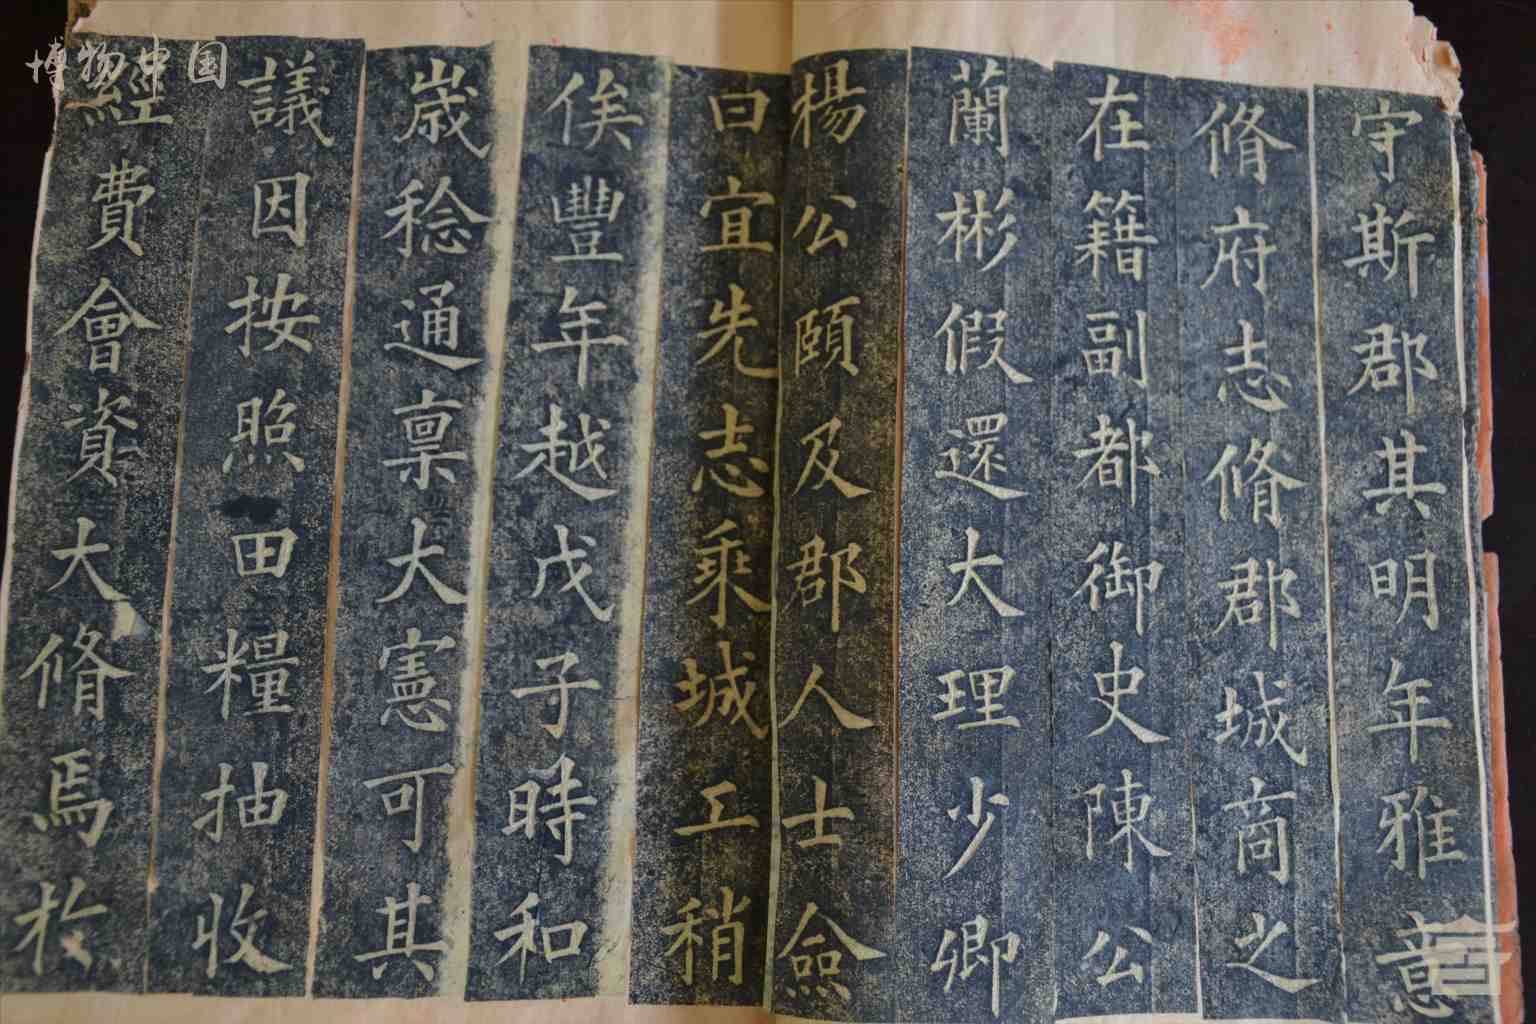 博物中国
守斯郡其明年雅意
脩府志脩郡城商之
在籍副都御史陳公
蘭彬假還大理少卿
楊公頤及郡人士僉
曰宜先志乘城工稍
俟豐年越戊子時和
歲稔通稟大憲可其
議因按照田糧抽收
經費會資大脩焉於